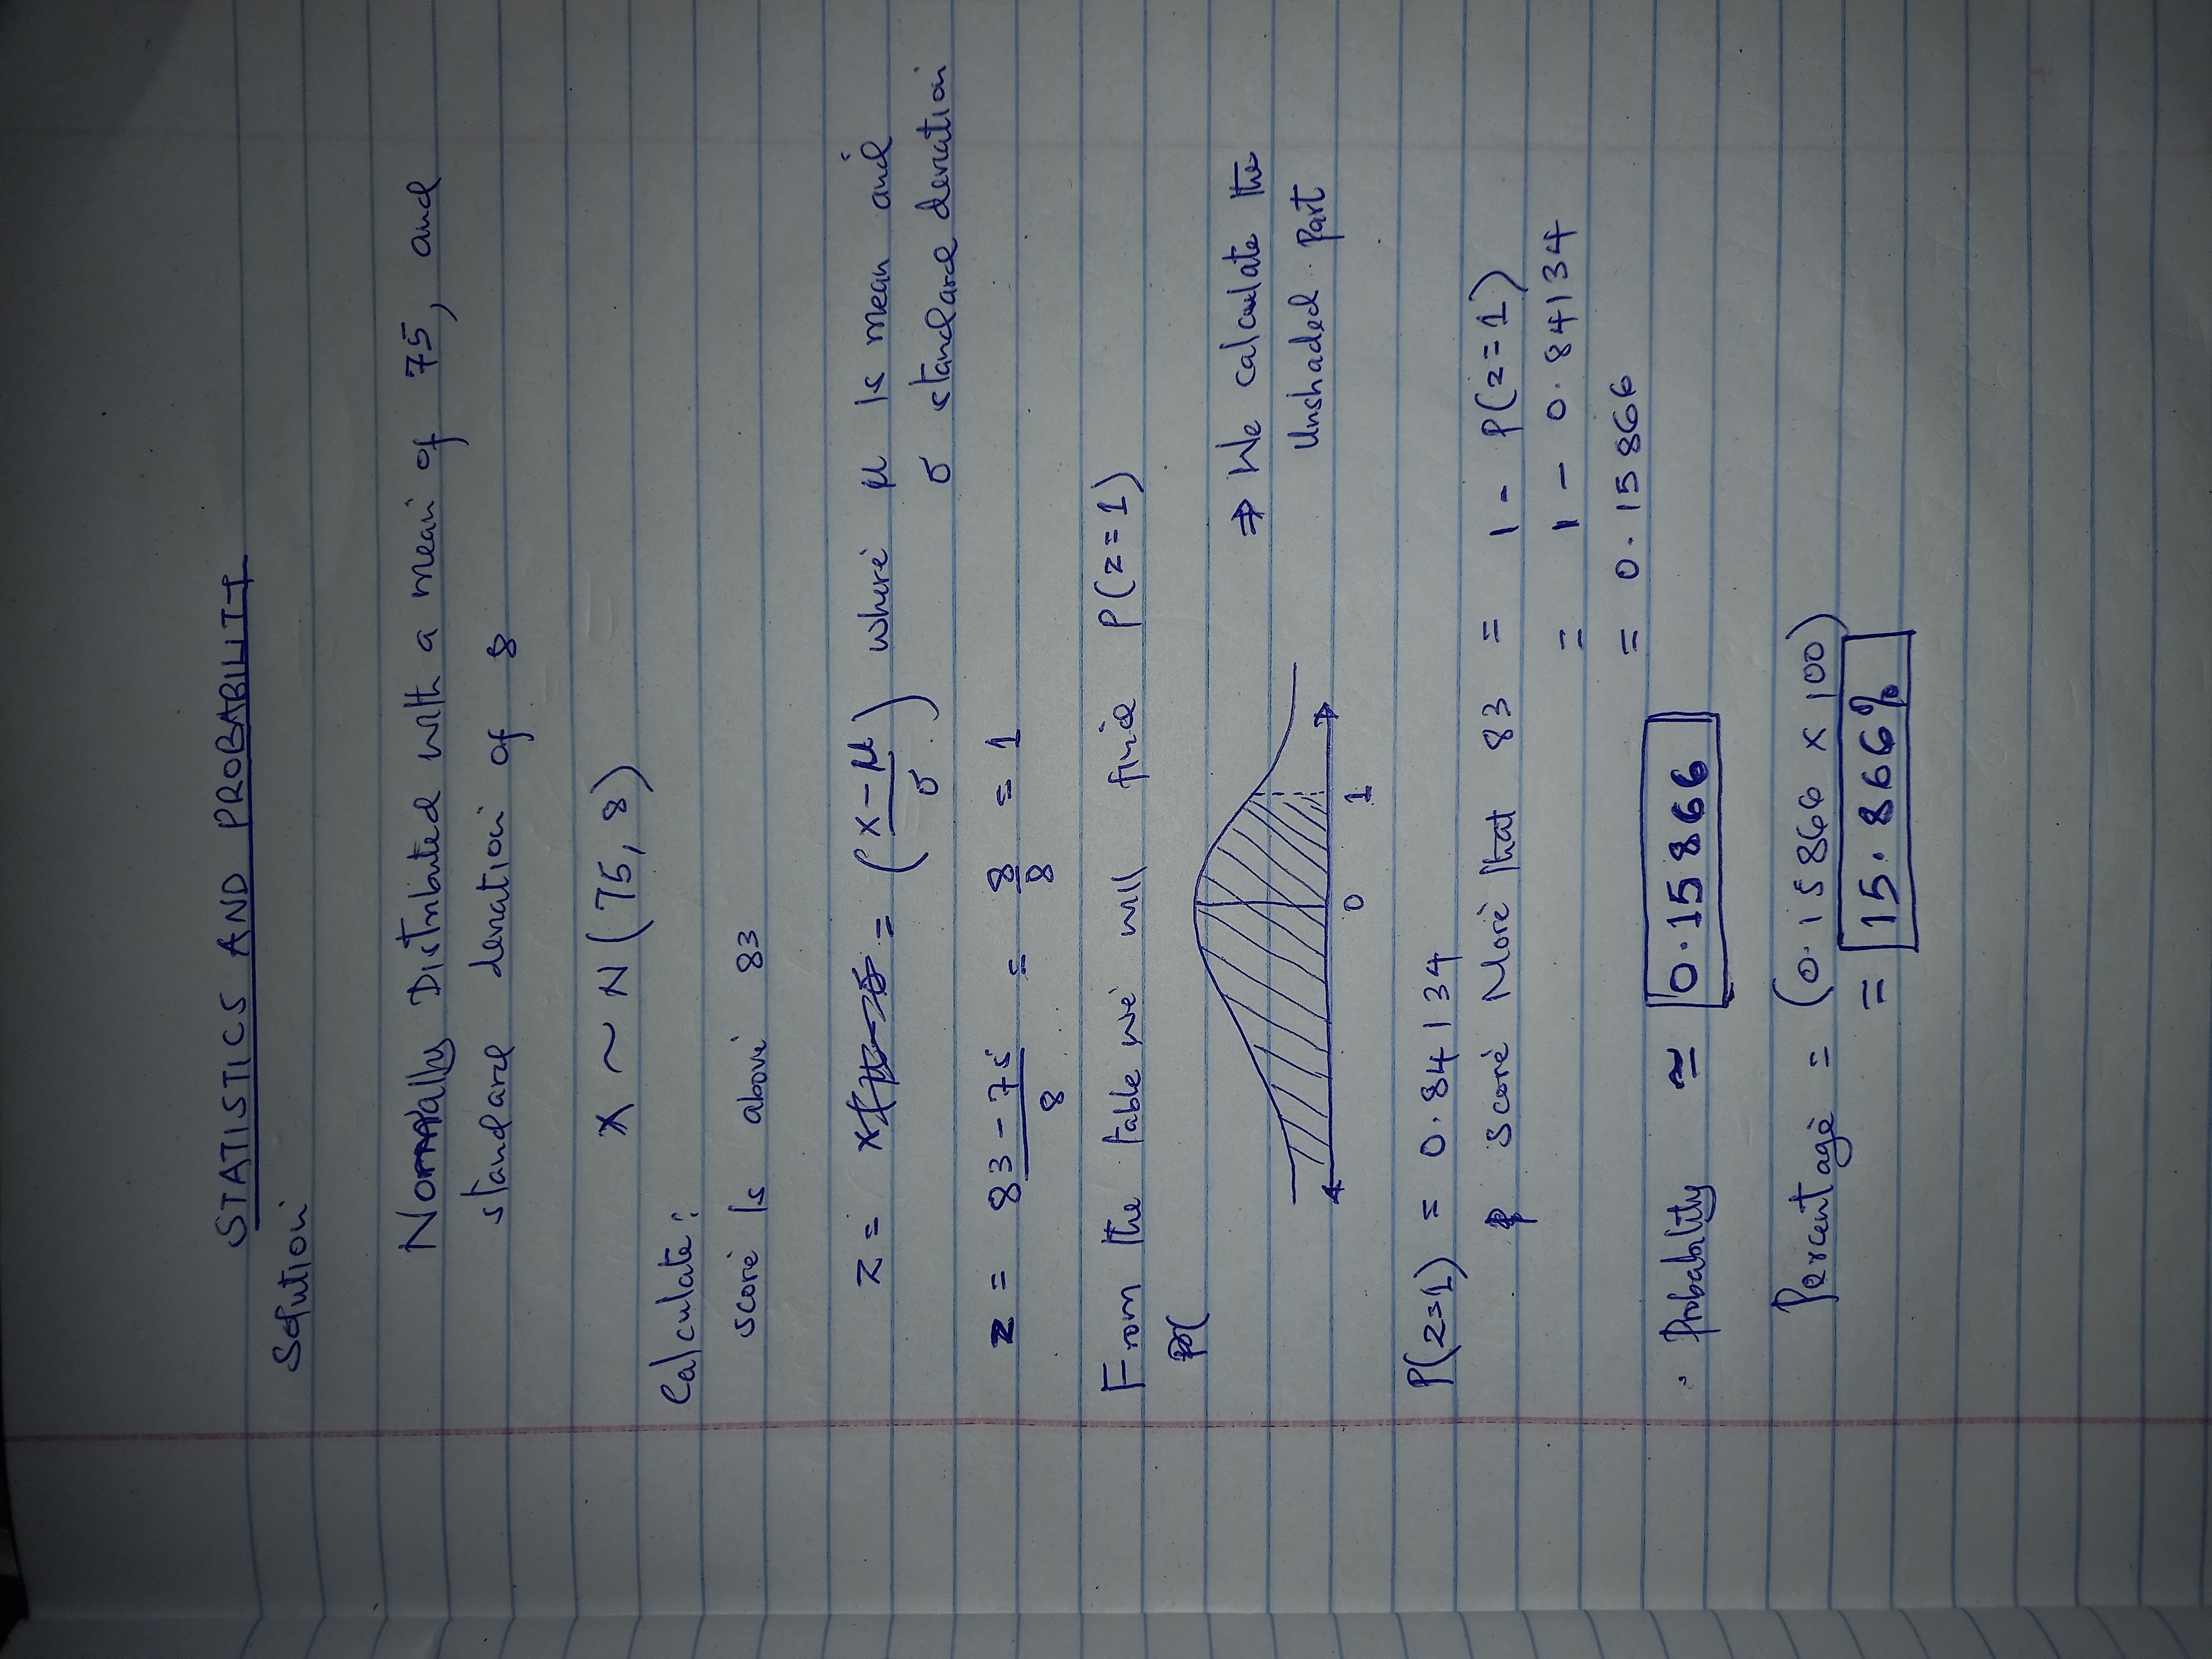 STATISTICS AND PROBABILITY
Solution
Normally Distributed with a mean of 75, and
standard deviation of 8
X ~ N(75, 8)
Calculate:
score Is above 83
Z = = (x-μ/σ) where μ Is mean and
σ standard deviation
z = 83-75/8 = 8/8 = 1
From the table we will find P(z=1)
P(
⇒ We calculate the
Unshaded part
0 1
P(z=1) = 0.84134
Score More that 83 = 1 - P(z=1)
= 1 - 0.84134
= 0.15866
Probability ≃ 0.15866
Percentage = (0.15866 x 100)
= 15.866%